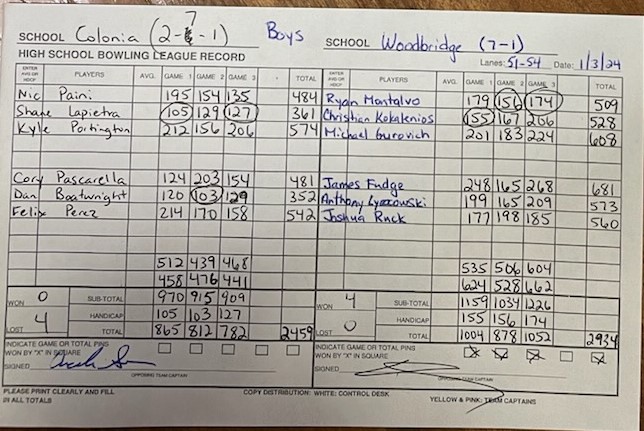 SCHOOL Colonia (2-7-1) Boys SCHOOL Woodbridge (7-1)
HIGH SCHOOL BOWLING LEAGUE RECORD Lanes: 51-54 Date: 1/3/24
ENTER AVG OR HDCP PLAYERS AVG. GAME 1 GAME 2 GAME 3 TOTAL ENTER AVG OR HDCP PLAYERS AVG. GAME 1 GAME 2 GAME 3 TOTAL
Nic Paini 195 154 135 484 Ryan Montalvo 179 156 174 509
Shane Lapietra 105 129 127 361 Christian Kokalenios 155 167 206 528
Kyle Portington 212 156 206 574 Michael Gurovich 201 183 224 608
Cory Pascarella 124 203 154 481 James Fudge 248 165 268 681
Dan Boatwright 120 103 129 352 Anthony 199 165 209 573
Felix Perez 214 170 158 542 Joshua Ruck 177 198 185 560
512 439 468 535 506 604
458 476 441 624 528 662
WON 0 SUB-TOTAL 970 915 909 WON 4 SUB-TOTAL 1159 1034 1226
HANDICAP 105 103 127 HANDICAP 155 156 174
LOST 4 TOTAL 865 812 782 2459 LOST 0 TOTAL 1004 878 1052 2934
INDICATE GAME OR TOTAL PINS INDICATE GAME OR TOTAL PINS
WON BY "X" IN SQUARE WON BY "X" IN SQUARE X X X X
SIGNED SIGNED
OPPOSING TEAM CAPTAIN OPPOSING TEAM CAPTAIN
PLEASE PRINT CLEARLY AND FILL COPY DISTRIBUTION: WHITE: CONTROL DESK YELLOW & PINK: TEAM CAPTAINS
IN ALL TOTALS